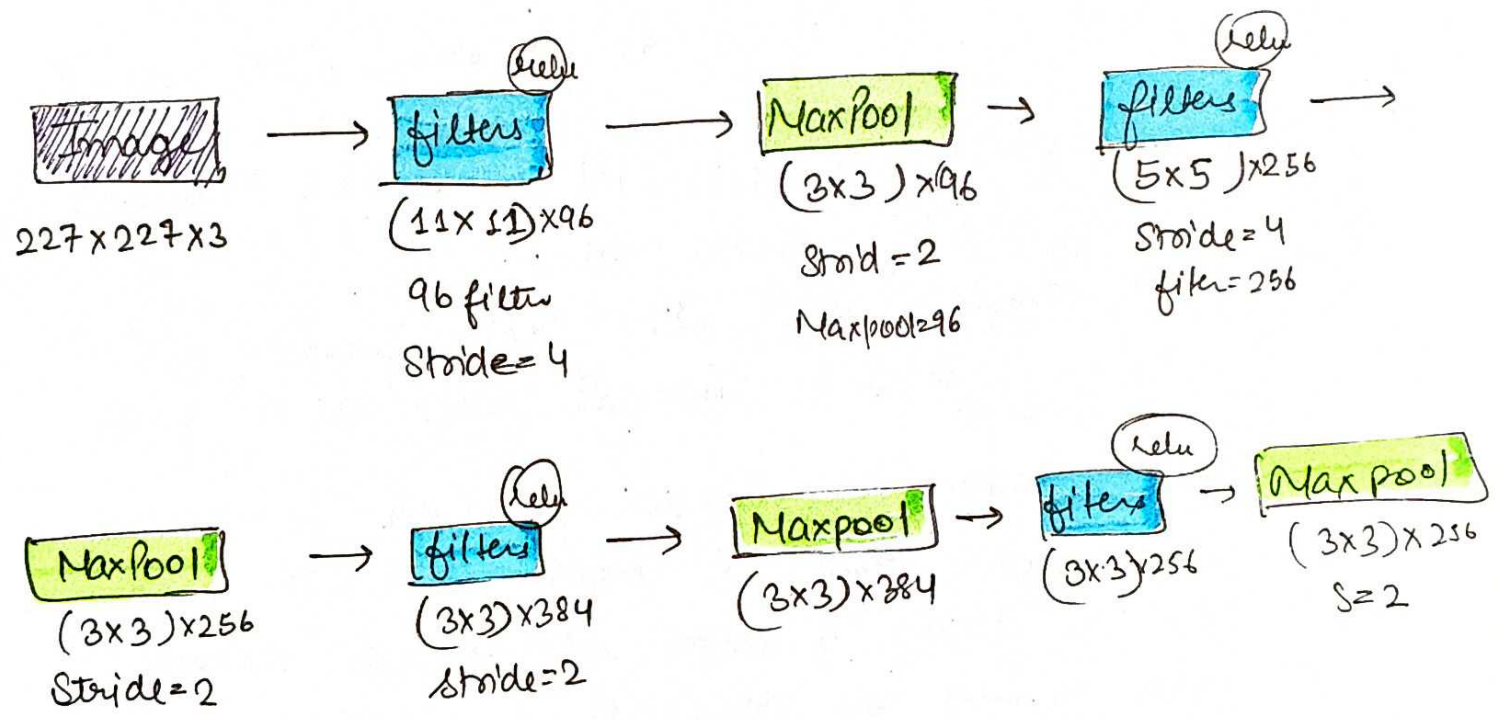 Image
227x227x3
relu
filters
(11x11)x96
96 filter
Stride=4
MaxPool
(3x3)x96
Strid=2
Maxpool=96
relu
filters
(5x5)x256
Stride=4
filter=256
MaxPool
(3x3)x256
Stride=2
relu
filters
(3x3)x384
stride=2
Maxpool
(3x3)x384
relu
filters
(3x3)x256
Maxpool
(3x3)x256
S=2